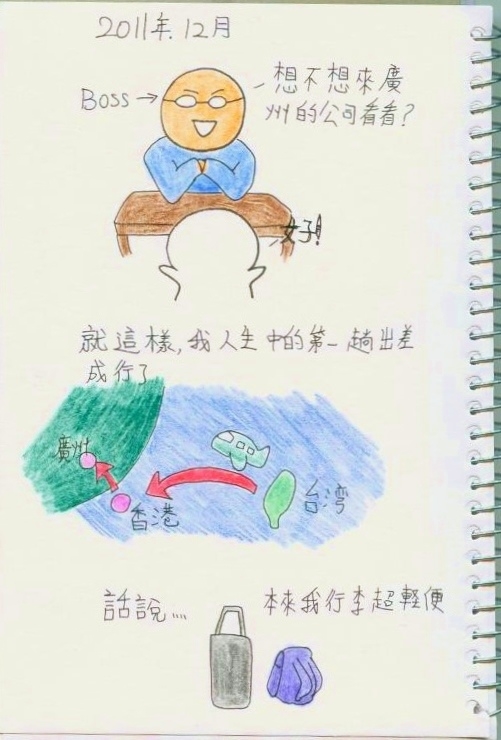 2011年.12月
Boss→
想不想來廣
州的公司看看?
好!
就這樣,我人生中的第一趟出差
成行了
廣州
香港
台湾
話說....
本來我行李超輕便